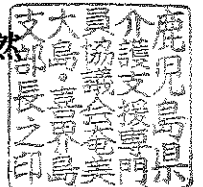 鹿児島県
介護支援専門
員協議会奄美
大島・喜界島
支部長之印
然